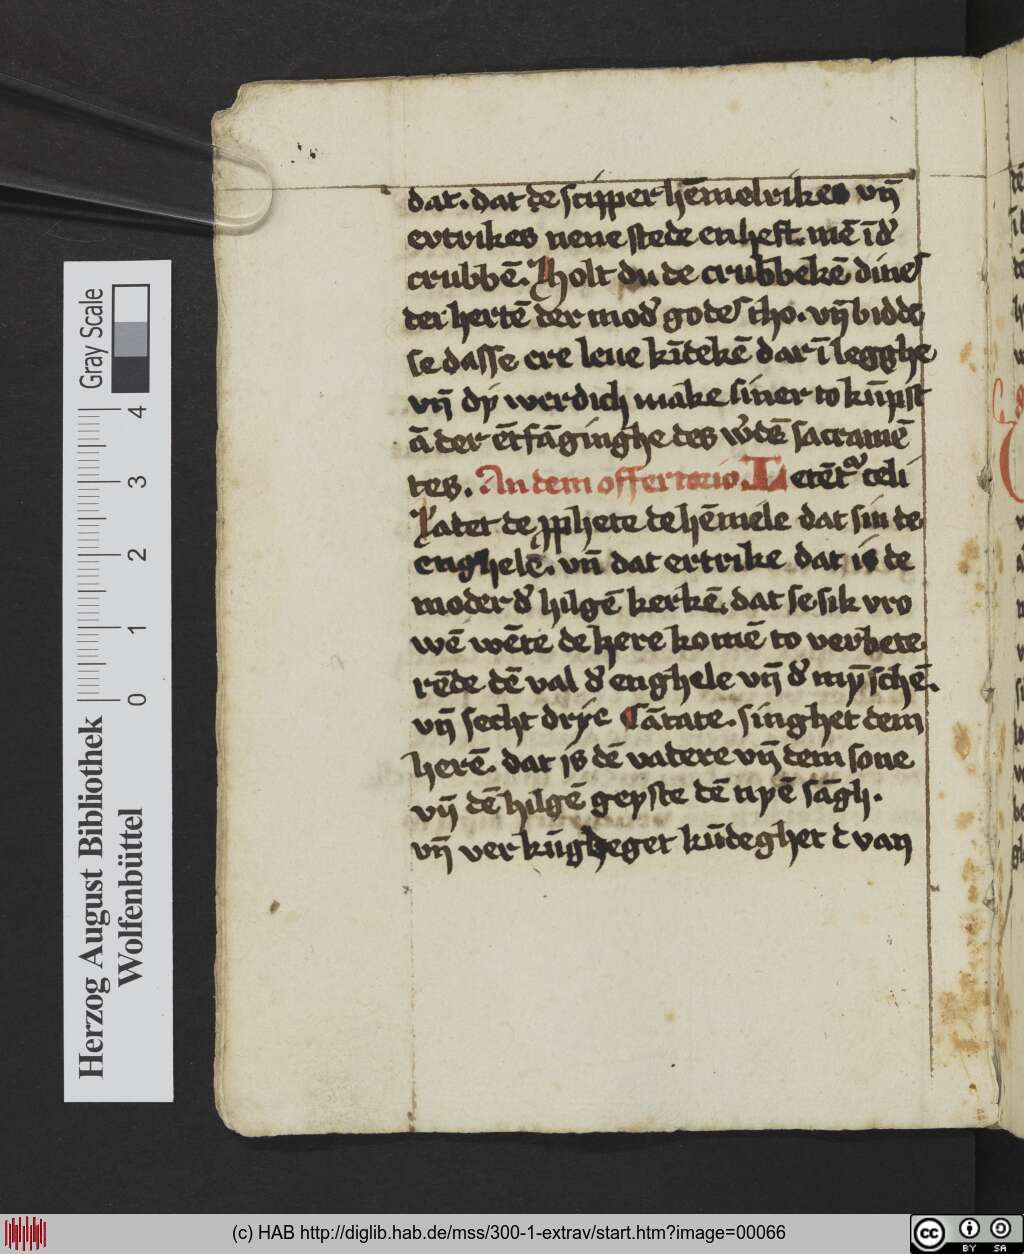 dat. dat de scipper hēmelrikes vn̄
ertrikes nene stede en heft. mē ī dʼ
crubbē. Holt du de crubbekē dines
der hertē der modʼ godes tho. vn̄ bidde
se dasse ere leue kīdekē dar ī legghe
vn̄ dy werdich make siner to kūpst
ā der ētfāginghe des wʼdē sacramē
tes. An dem offertorio. Letētʼ celi
Latet de ꝓphete de hēmele dat sin de
enghelē. vn̄ dat ertrike dat is de
moder dʼ hilgē kerkē. dat se sik vro
wē wēte de here komē to verbete
rēde dē val dʼ enghele vn̄ dʼ mȳschē.
vn̄ secht drye Cātate. singhet dem
herē. dat is dē vadere vn̄ dem sone
vn̄ dē hilgē geyste dē nyē sāgh.
vn̄ verkūgheget kūdeghet t van
Gray Scale
4
3
2
1
0
Herzog August Bibliothek
Wolfenbüttel
(c) HAB http://diglib.hab.de/mss/300-1-extrav/start.htm?image=00066
cc
BY SA